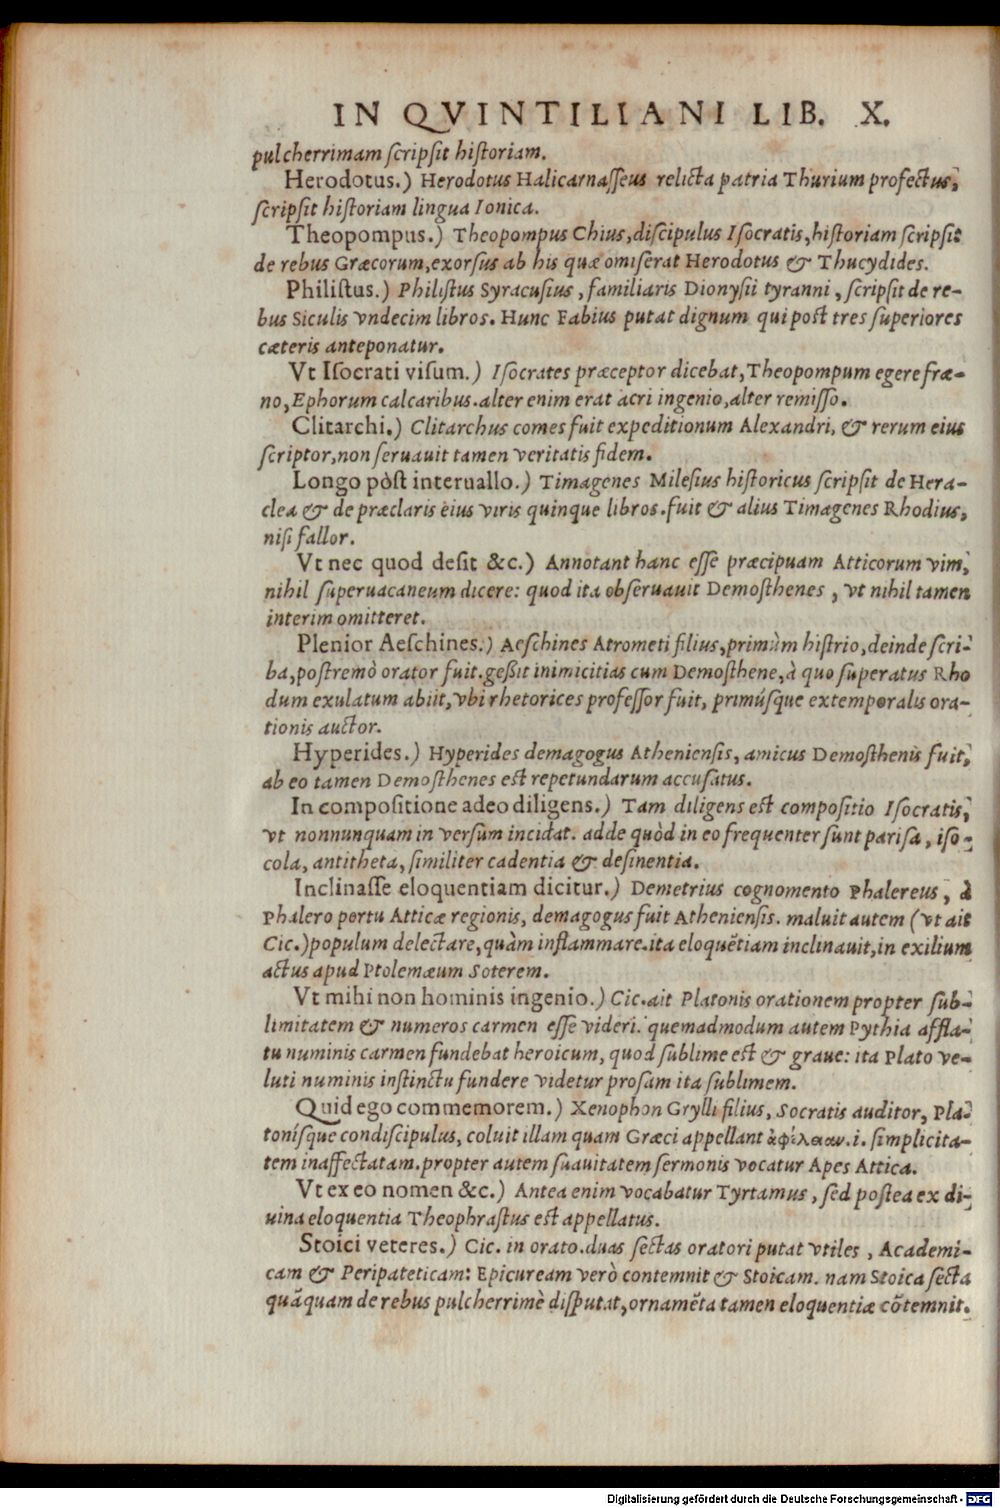 IN QVINTILIANI LIB. X.
pulcherrimam scripsit historiam.
Herodotus.) Herodotus Halicarnasseus relicta patria Thurium profectus,
scripsit historiam lingua Ionica.
Theopompus.) Theopompus Chius, discipulus Isocratis, historiam scripsit
de rebus Græcorum, exorsus ab his quæ omiserat Herodotus & Thucydides.
Philistus.) Philistus Syracusius, familiaris Dionysii tyranni, scripsit de re-
bus Siculis vndecim libros. Hunc Fabius putat dignum qui post tres superiores
cæteris anteponatur.
Vt Isocrati visum.) Isocrates præceptor dicebat, Theopompum egere fræ-
no, Ephorum calcaribus. alter enim erat acri ingenio, alter remisso.
Clitarchi.) Clitarchus comes fuit expeditionum Alexandri, & rerum eius
scriptor, non seruauit tamen veritatis fidem.
Longo pòst interuallo.) Timagenes Milesius historicus scripsit de Hera-
clea & de præclaris eius viris quinque libros. fuit & alius Timagenes Rhodius,
nisi fallor.
Vt nec quod desit &c.) Annotant hanc esse præcipuam Atticorum vim,
nihil superuacaneum dicere: quod ita obseruauit Demosthenes, vt nihil tamen
interim omitteret.
Plenior Aeschines.) Aeschines Atrometi filius, primùm histrio, deinde scri-
ba, postremò orator fuit. geßit inimicitias cum Demosthene, à quo superatus Rho
dum exulatum abiit, vbi rhetorices professor fuit, primúsque extemporalis ora-
tionis auctor.
Hyperides.) Hyperides demagogus Atheniensis, amicus Demosthenis fuit,
ab eo tamen Demosthenes est repetundarum accusatus.
In compositione adeo diligens.) Tam diligens est compositio Isocratis,
vt nonnunquam in versum incidat. adde quòd in eo frequenter sunt parisa, iso-
cola, antitheta, similiter cadentia & desinentia.
Inclinasse eloquentiam dicitur.) Demetrius cognomento Phalereus, à
Phalero portu Atticæ regionis, demagogus fuit Atheniensis. maluit autem (vt ait
Cic.) populum delectare, quàm inflammare. ita eloquẽtiam inclinauit, in exilium
actus apud Ptolemæum Soterem.
Vt mihi non hominis ingenio.) Cic. ait Platonis orationem propter sub-
limitatem & numeros carmen esse videri. quemadmodum autem Pythia affla-
tu numinis carmen fundebat heroicum, quod sublime est & graue: ita Plato ve-
luti numinis instinctu fundere videtur prosam ita sublimem.
Quid ego commemorem.) Xenophon Grylli filius, Socratis auditor, Pla-
tonísque condiscipulus, coluit illam quam Græci appellant ἀφέλειαν. i. simplicita-
tem inaffectatam. propter autem suauitatem sermonis vocatur Apes Attica.
Vt ex eo nomen &c.) Antea enim vocabatur Tyrtamus, sed postea ex di-
uina eloquentia Theophrastus est appellatus.
Stoici veteres.) Cic. in orato. duas sectas oratori putat vtiles, Academi-
cam & Peripateticam: Epicuream verò contemnit & Stoicam. nam Stoica secta
quãquam de rebus pulcherrimè disputat, ornamẽta tamen eloquentiæ cõtemnit.
Digitalisierung gefördert durch die Deutsche Forschungsgemeinschaft - DFG